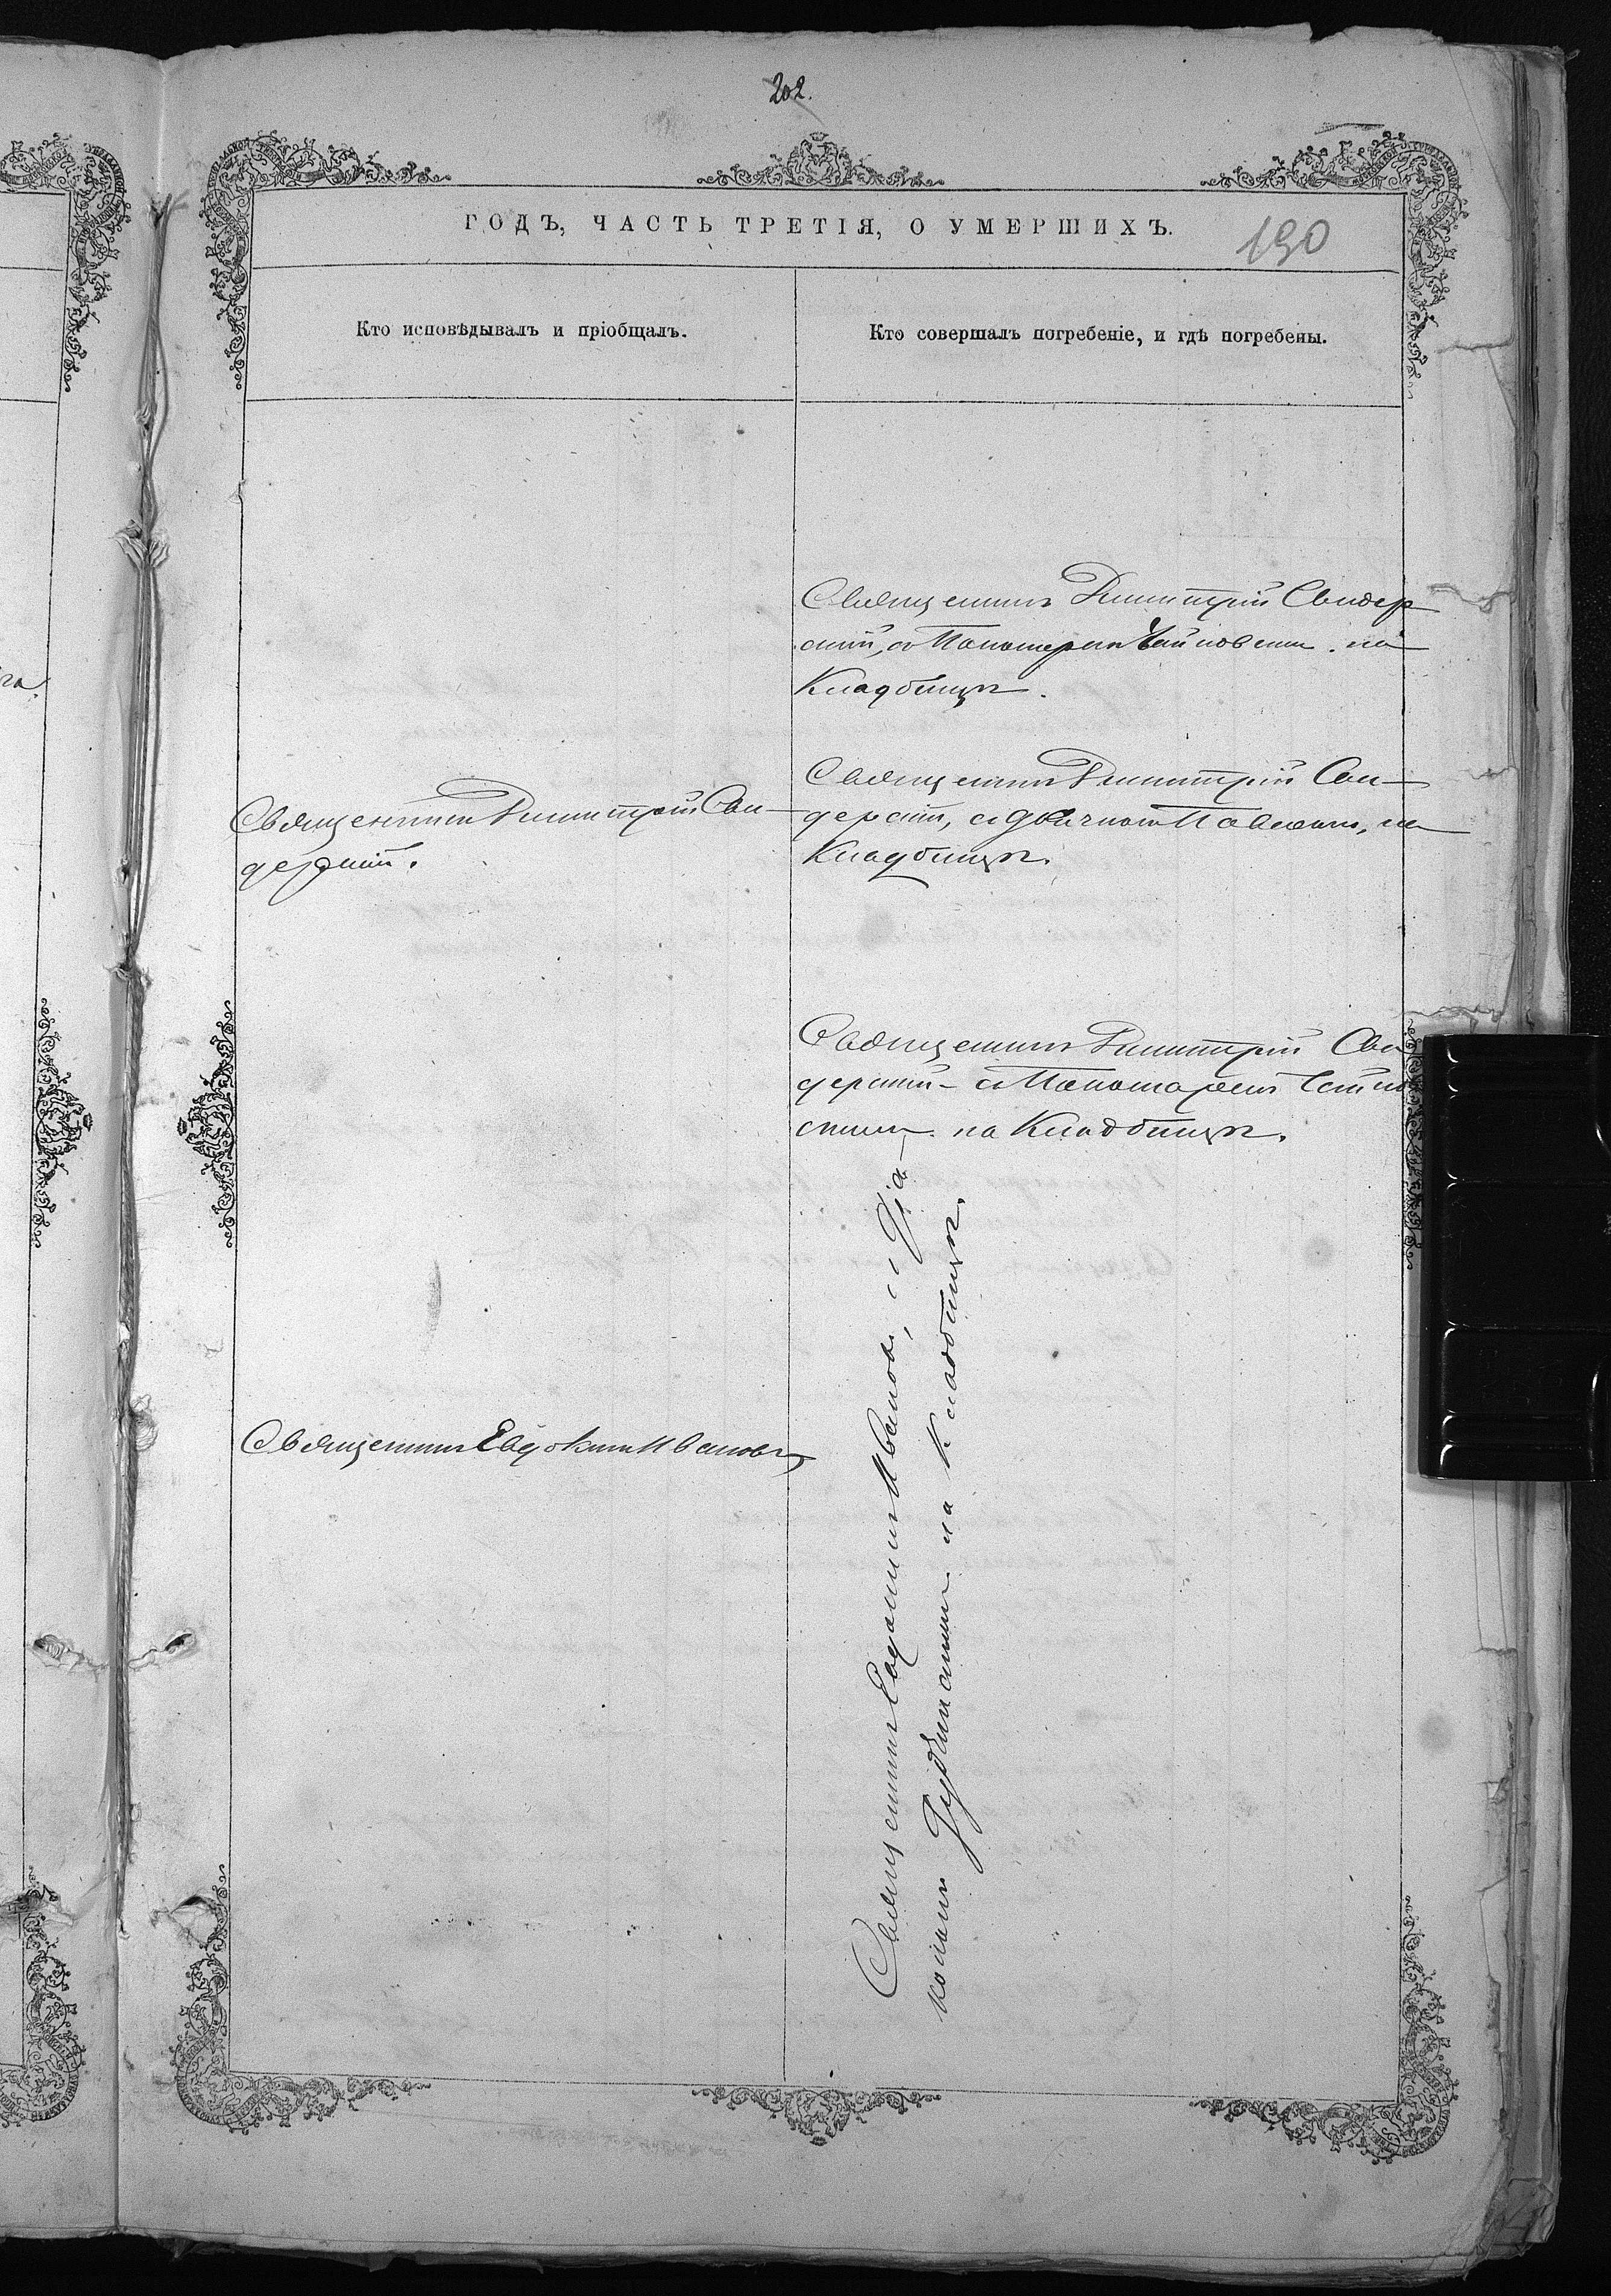 202.
ГОДЪ, ЧАСТЬ ТРЕТІЯ, О УМЕРШИХЪ.
190
Кто исповѣдывалъ и пріобщалъ.
Кто совершалъ погребеніе, и гдѣ погребены.
Священникъ Димитрій Свидер
скій, съ Пономаремъ на
Кладбищѣ.
Священникъ Димитрій Сви-
дерскій.
Священникъ Димитрій Сви-
дерскій, съ дьячкомъ на
Кладбищѣ.
Священникъ Димитрій Сви
дерскій - съ Пономаремъ
скимъ на Кладбищѣ.
Священникъ Евдокимъ Ивановъ
Священникъ Евдокимъ Ивановъ, съ Діа-
кономъ на Кладбищѣ.